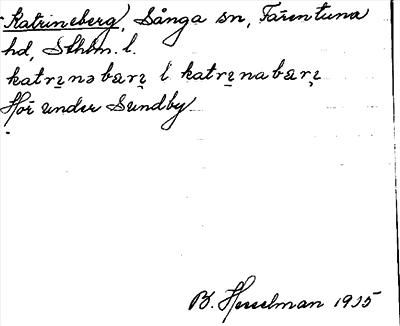 Katrineberg, Sånga sn, Färentuna
hd, Sthlm. l.
katrı̲nə bærı̣ l katrı̲na bærı̣
Hör under Sundby
B. Hesselman 1935